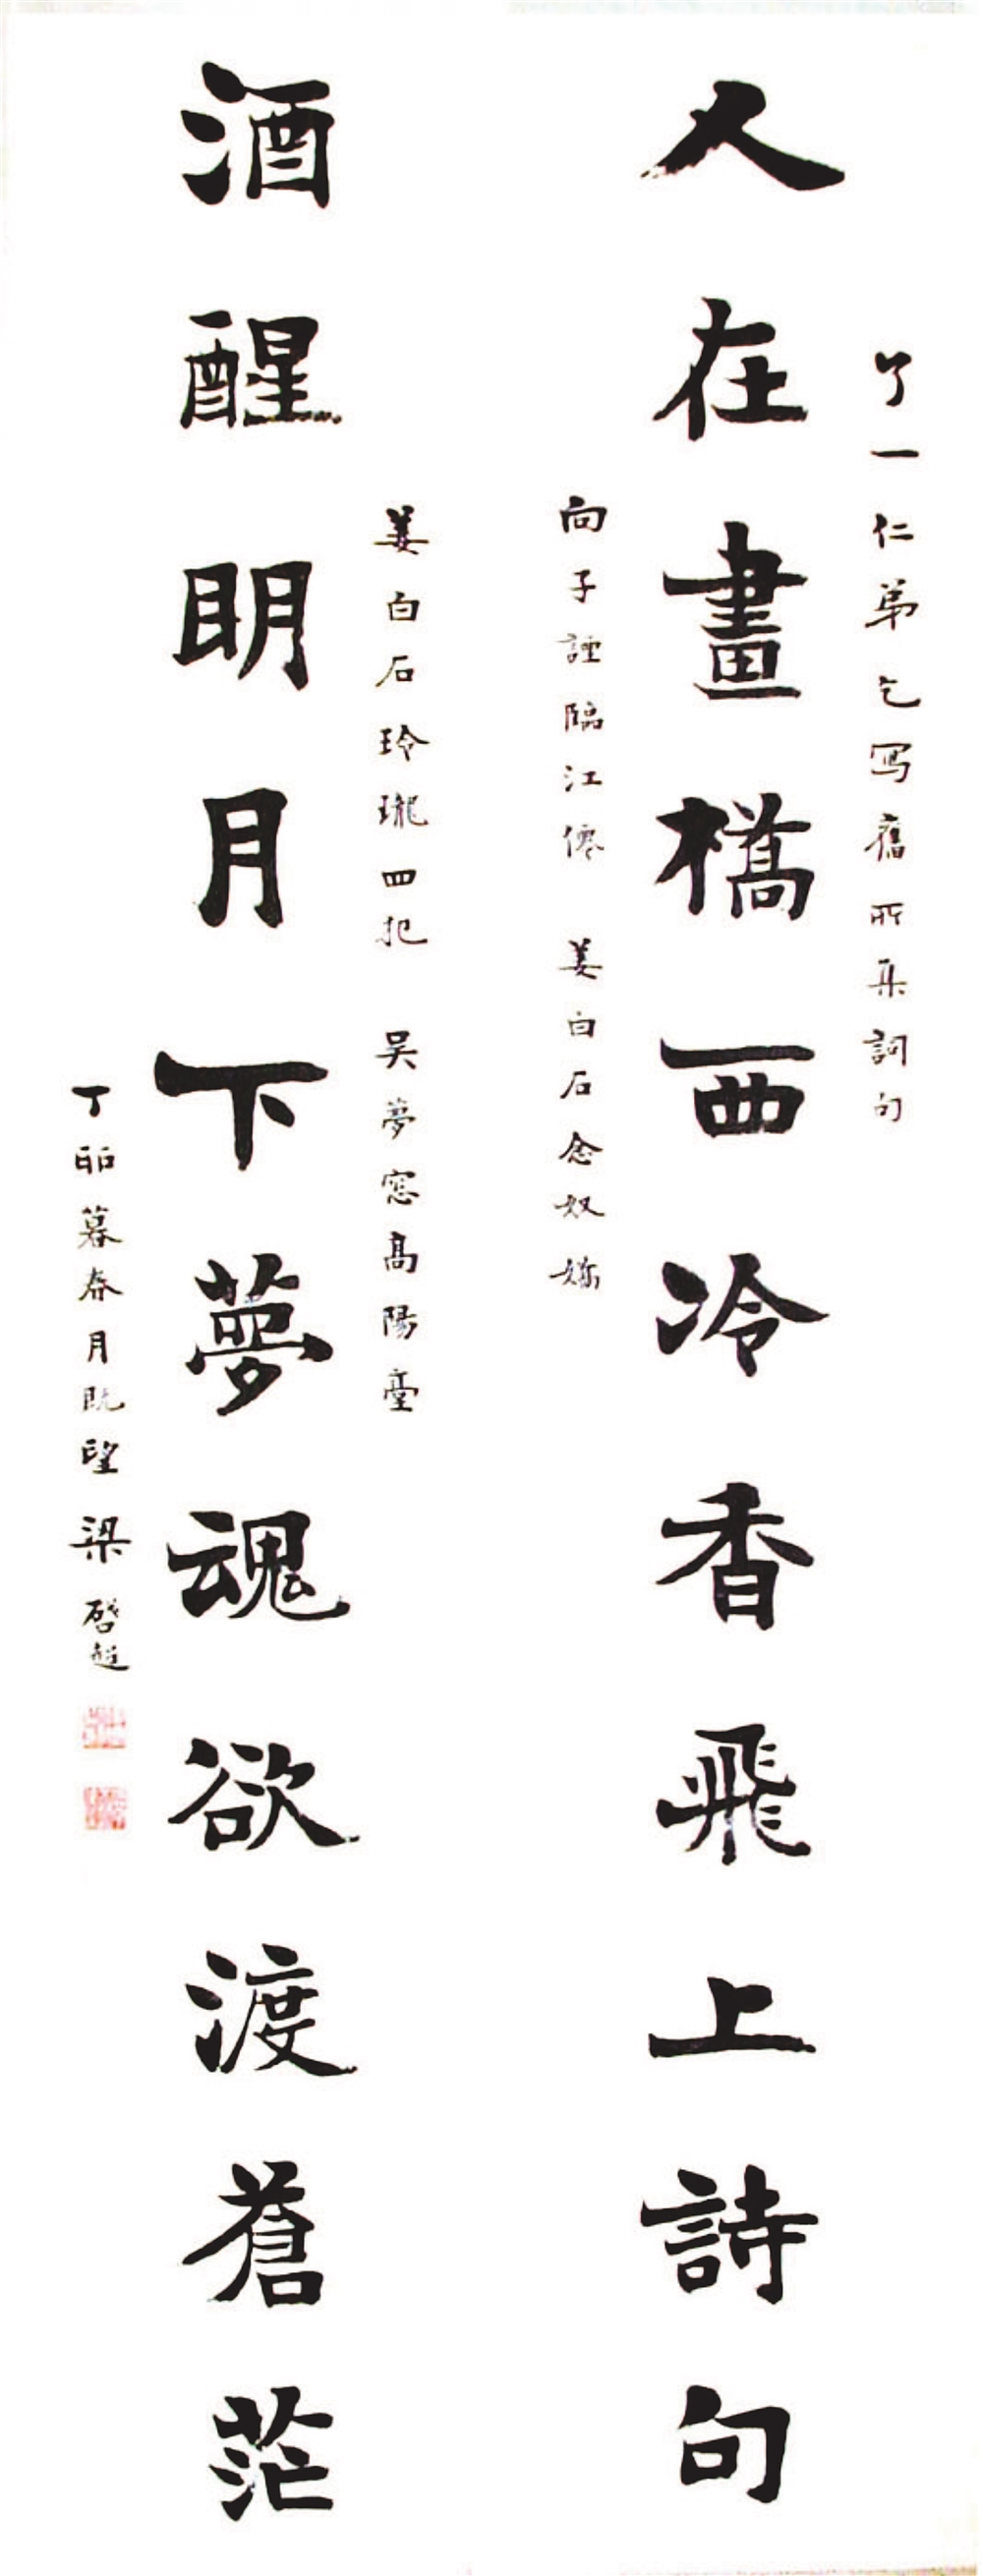 了一仁弟乞写舊所集詞句
人在畫橋西冷香飛上詩句
向子諲臨江僊 姜白石念奴嬌
姜白石玲瓏四犯 吴夢窓高陽臺
酒醒明月下夢魂欲渡蒼茫
丁卯暮春月既望梁啓超